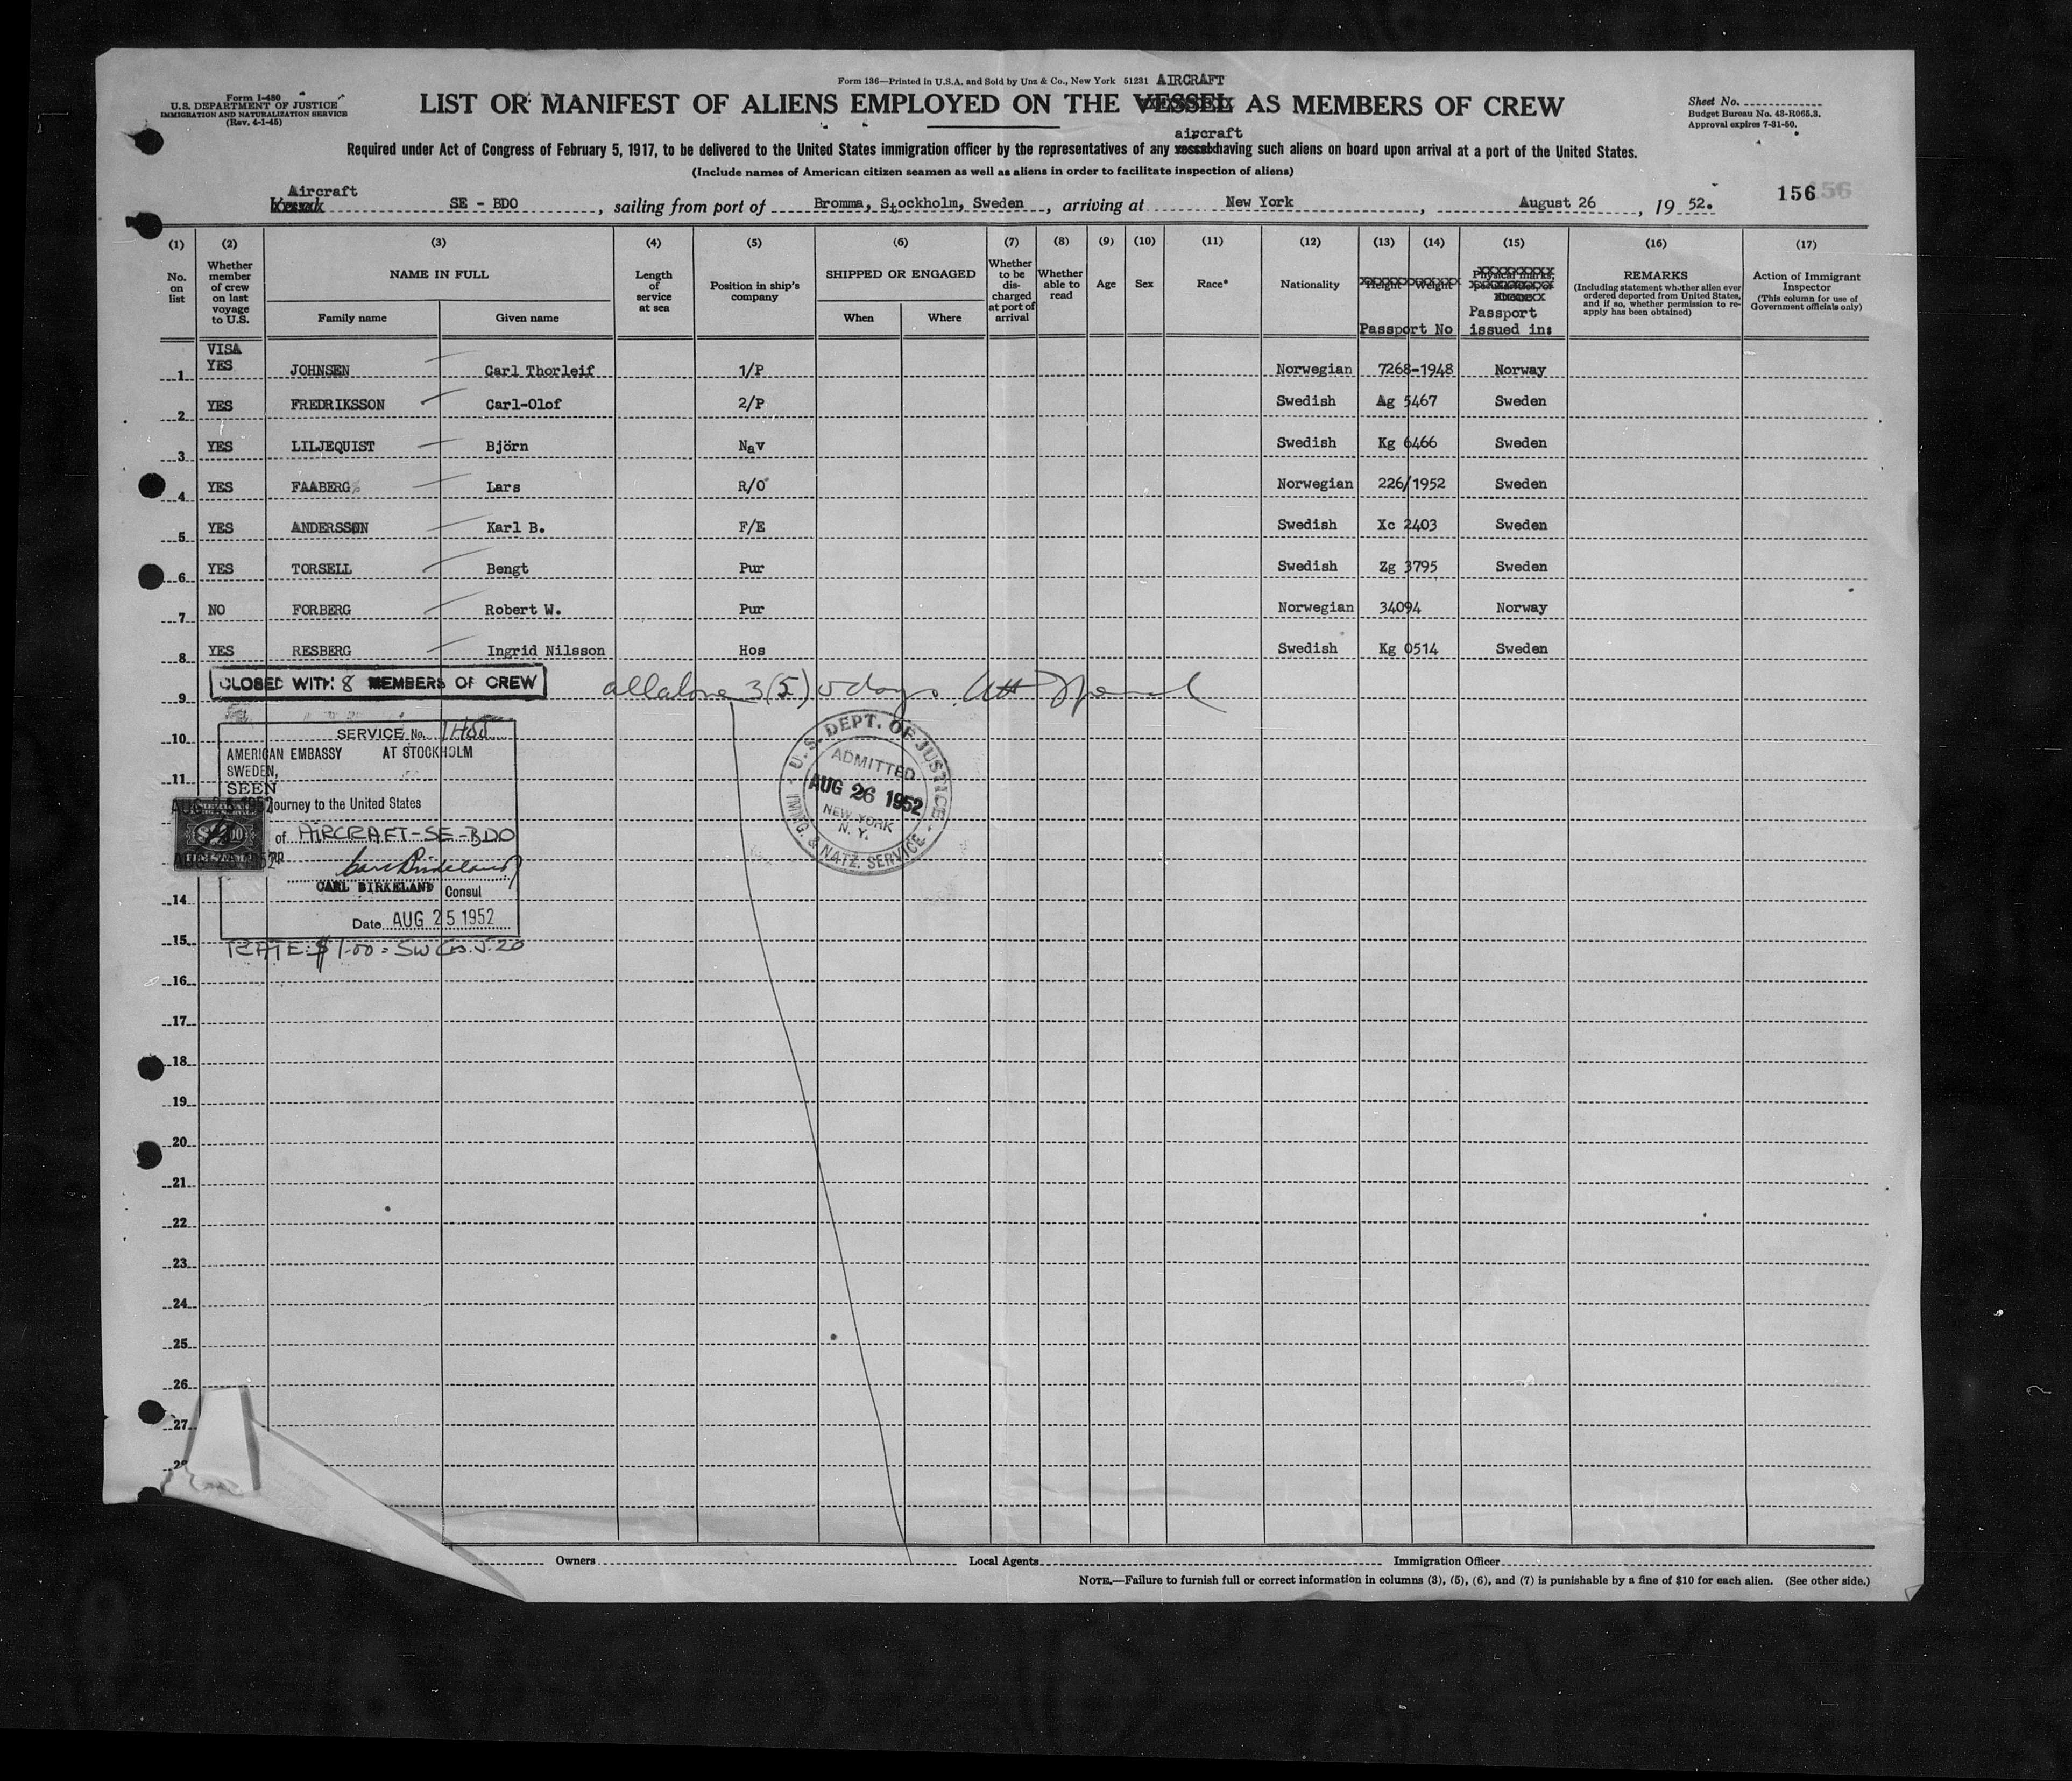 Form I-480
U.S. DEPARTMENT OF JUSTICE
IMMIGRATION AND NATURALIZATION SERVICE
(Rev. 4-1-45)
Form 136—Printed in U.S.A. and Sold by Unz & Co., New York 51231 AIRCRAFT
LIST OR MANIFEST OF ALIENS EMPLOYED ON THE VESSEL AS MEMBERS OF CREW
Sheet No.
Budget Bureau No. 43-R065.3.
Approval expires 7-31-50.
aircraft
Required under Act of Congress of February 5, 1917, to be delivered to the United States immigration officer by the representatives of any vessel having such aliens on board upon arrival at a port of the United States.
(Include names of American citizen seamen as well as aliens in order to facilitate inspection of aliens)
Aircraft
Vessel SE - BDO, sailing from port of Bromma, Stockholm, Sweden, arriving at New York, August 26, 1952.
156
(1) (2) (3) (4) (5) (6) (7) (8) (9) (10) (11) (12) (13) (14) (15) (16) (17)
No. on list
Whether member of crew on last voyage to U.S.
NAME IN FULL
Family name
Given name
Length of service at sea
Position in ship's company
SHIPPED OR ENGAGED
When
Where
Whether to be discharged at port of arrival
Whether able to read
Age
Sex
Race*
Nationality
Height Weight
Passport No
Physical marks,
Passport issued in:
REMARKS
(Including statement whether alien ever ordered deported from United States, and if so, whether permission to reapply has been obtained)
Action of Immigrant Inspector
(This column for use of Government officials only)
VISA
1 YES JOHNSEN Carl Thorleif 1/P Norwegian 7268-1948 Norway
2 YES FREDRIKSSON Carl-Olof 2/P Swedish Ag 5467 Sweden
3 YES LILJEQUIST Björn Nav Swedish Kg 6466 Sweden
4 YES FAABERG Lars R/O Norwegian 226/1952 Sweden
5 YES ANDERSSON Karl B. F/E Swedish Xc 2403 Sweden
6 YES TORSELL Bengt Pur Swedish Zg 3795 Sweden
7 NO FORBERG Robert W. Pur Norwegian 34094 Norway
8 YES RESBERG Ingrid Nilsson Hos Swedish Kg 0514 Sweden
CLOSED WITH 8 MEMBERS OF CREW
all above 3(5) days
9
10
11
14
15
16
17
18
19
20
21
22
23
24
25
26
27
SERVICE No. 1485
AMERICAN EMBASSY AT STOCKHOLM
SWEDEN,
SEEN
Journey to the United States
of AIRCRAFT-SE-BDO
CARL BIRKELAND Consul
Date AUG 25 1952
RATE: $1.00 = SW Crs. 5.20
U.S. DEPT. OF JUSTICE
ADMITTED
AUG 26 1952
NEW YORK
N. Y.
IMMG. & NATZ. SERVICE
Owners Local Agents Immigration Officer
NOTE.—Failure to furnish full or correct information in columns (3), (5), (6), and (7) is punishable by a fine of $10 for each alien. (See other side.)